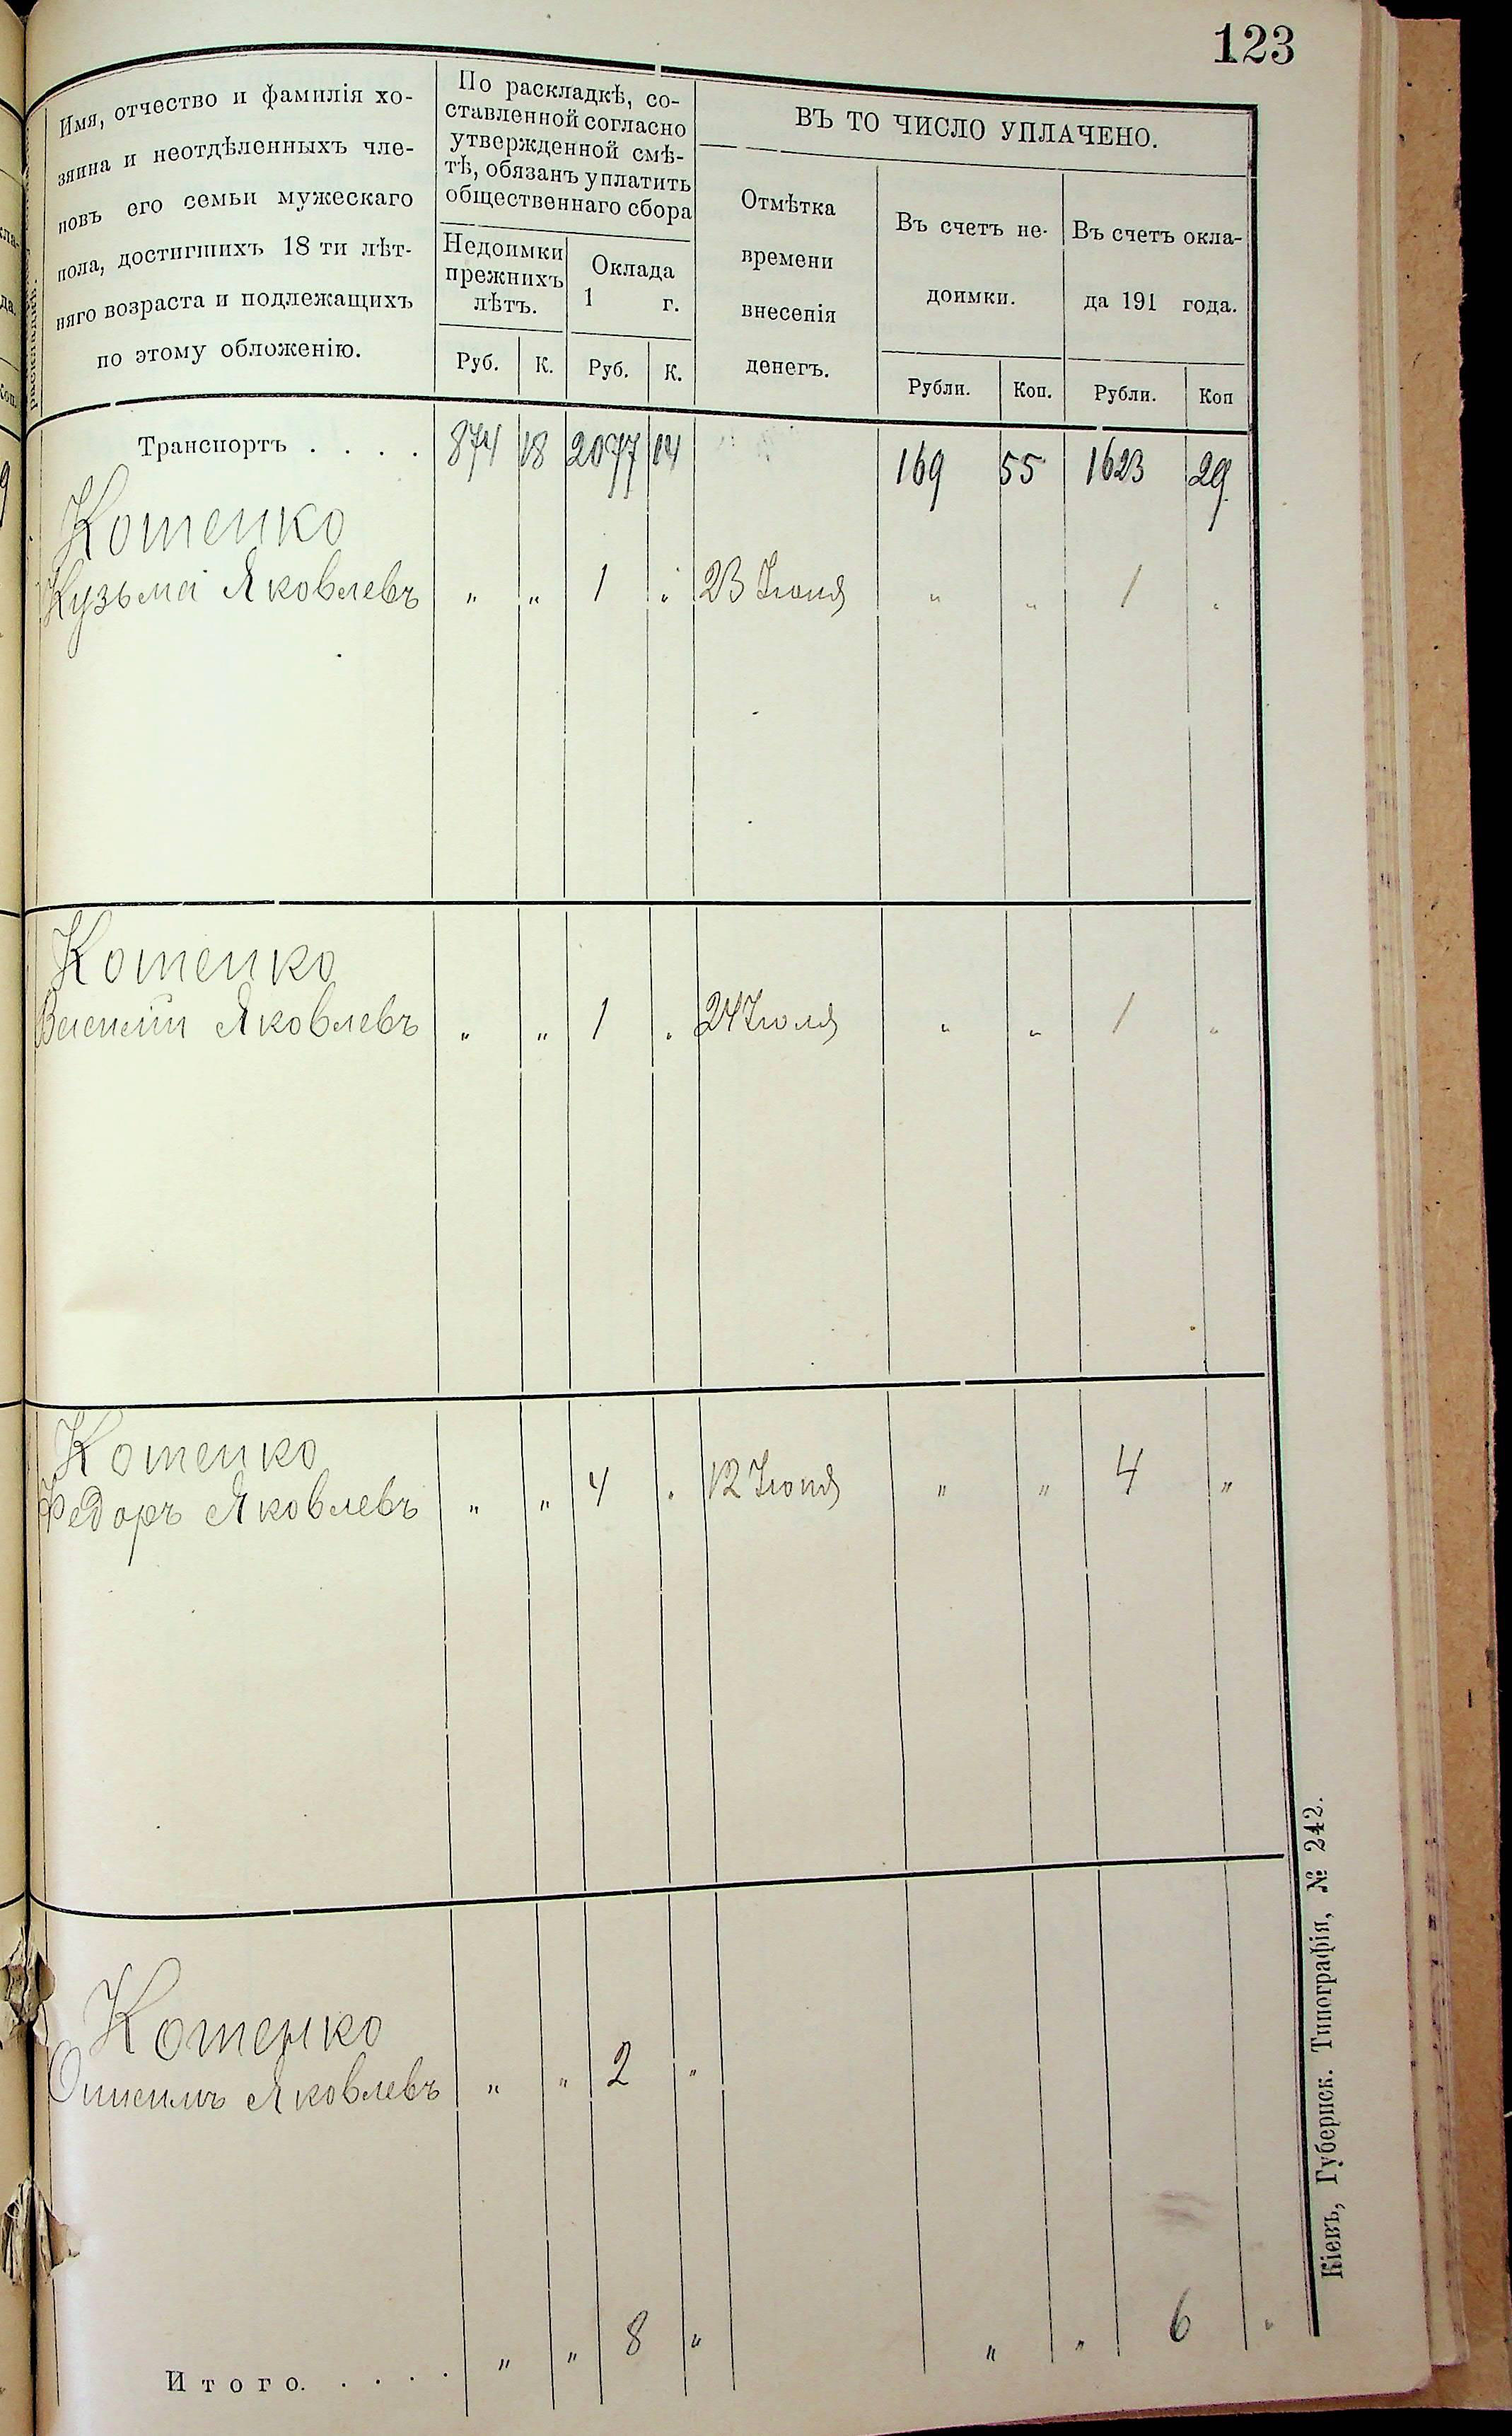 123
Имя, отчество и фамилія хо-
зяина и неотдѣленныхъ чле-
новъ его семьи мужескаго
пола, достигшихъ 18 ти лѣт-
няго возраста и подлежащихъ
по этому обложенію.
По раскладкѣ, со-
ставленной согласно
утвержденной смѣ-
тѣ, обязанъ уплатить
общественнаго сбора
Недоимки
прежнихъ
лѣтъ.
Оклада
1 г.
Руб. К. Руб. К.
ВЪ ТО ЧИСЛО УПЛАЧЕНО.
Отмѣтка
времени
внесенія
денегъ.
Въ счетъ не-
доимки.
Въ счетъ окла-
да 191 года.
Рубли. Коп. Рубли. Коп
Транспортъ . . . . 874 18 2077 14 169 55 1623 29
Котенко
Кузьма Яковлевъ „ „ 1 „ 23 Іюня „ „ 1 „
Котенко
Василій Яковлевъ „ „ 1 „ 24 Іюля „ „ 1 „
Котенко
Федоръ Яковлевъ „ „ 4 „ 12 Іюня „ „ 4 „
Котенко
Онисимъ Яковлевъ „ „ 2 „
Итого. . . . . „ „ 8 „ „ „ 6 „
Кіевъ, Губернск. Типографія, № 242.